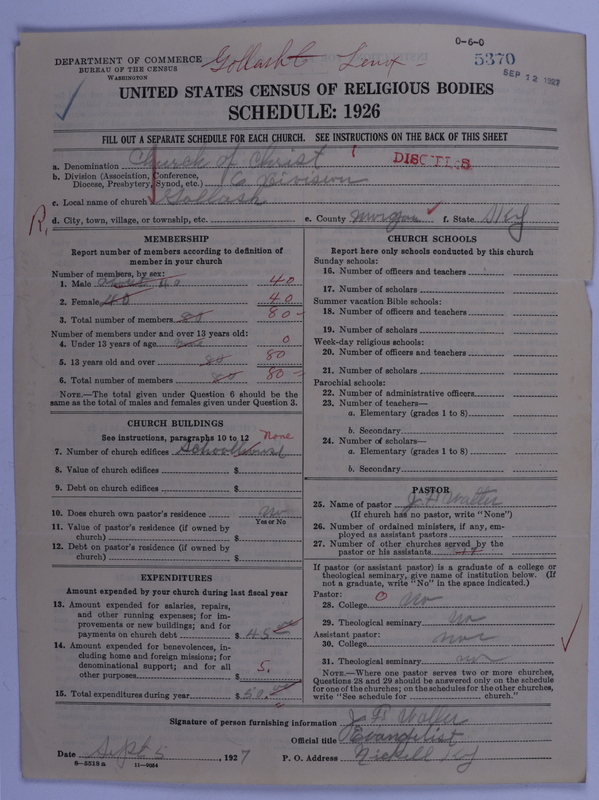 0-6-0
DEPARTMENT OF COMMERCE
BUREAU OF THE CENSUS
WASHINGTON
Gollash Lenox
5370
SEP 12 1927
UNITED STATES CENSUS OF RELIGIOUS BODIES
SCHEDULE: 1926
FILL OUT A SEPARATE SCHEDULE FOR EACH CHURCH. SEE INSTRUCTIONS ON THE BACK OF THIS SHEET
a. Denomination Church of Christ
b. Division (Association, Conference,
Diocese, Presbytery, Synod, etc.) Co Division
c. Local name of church Gollash
d. City, town, village, or township, etc. e. County Morgan f. State Ky
R,
MEMBERSHIP
Report number of members according to definition of
member in your church
Number of members, by sex:
1. Male 40 40
2. Female 40 40
3. Total number of members 80 80
Number of members under and over 13 years old:
4. Under 13 years of age 0
5. 13 years old and over 80 80
6. Total number of members 80 80
NOTE.—The total given under Question 6 should be
same as the total of males and females given under Question 3.
CHURCH BUILDINGS
See instructions, paragraphs 10 to 12 None
7. Number of church edifices
8. Value of church edifices $
9. Debt on church edifices $
10. Does church own pastor's residence no
Yes or No
11. Value of pastor's residence (if owned by
church) $
12. Debt on pastor's residence (if owned by
church) $
EXPENDITURES
Amount expended by your church during last fiscal year
13. Amount expended for salaries, repairs,
and other running expenses; for im-
provements or new buildings; and for
payments on church debt $ 45
14. Amount expended for benevolences, in-
cluding home and foreign missions; for
denominational support; and for all
other purposes $ 5.
15. Total expenditures during year $ 50.
CHURCH SCHOOLS
Report here only schools conducted by this church
Sunday schools:
16. Number of officers and teachers
17. Number of scholars
Summer vacation Bible schools:
18. Number of officers and teachers
19. Number of scholars
Week-day religious schools:
20. Number of officers and teachers
21. Number of scholars
Parochial schools:
22. Number of administrative officers
23. Number of teachers—
a. Elementary (grades 1 to 8)
b. Secondary
24. Number of scholars—
a. Elementary (grades 1 to 8)
b. Secondary
PASTOR
25. Name of pastor J. F. Walter
(If church has no pastor, write "None")
26. Number of ordained ministers, if any, em-
ployed as assistant pastors
27. Number of other churches served by the
pastor or his assistants
If pastor (or assistant pastor) is a graduate of a college or
theological seminary, give name of institution below. (If
not a graduate, write "No" in the space indicated.)
Pastor:
28. College 0 no
29. Theological seminary no
Assistant pastor:
30. College
31. Theological seminary
NOTE.—Where one pastor serves two or more churches,
Questions 28 and 29 should be answered only on the schedule
for one of the churches; on the schedules for the other churches,
write "See schedule for church."
Signature of person furnishing information J. F. Walter
Official title Evangelist
Date Sept 5, 1927 P. O. Address Nickell Ky
8-5518a 11-9084